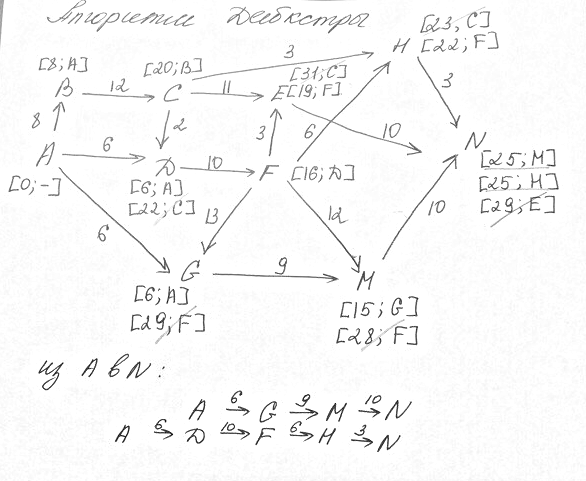 Алгоритм Дейкстры
[23, C]
3 H [22; F]
[8; A] [20; B] [31; C]
B 12 C 11 E [19; F] 3
8 2 3 6 10 N
A 6 D 10 F [16; D] [25; M]
[0; -] [6; A] [25; H]
[22; C] 13 12 10 [29; E]
6
G 9 M
[6; A] [15; G]
[29; F] [28; F]
из A в N:
A 6→ G 9→ M 10→ N
A 6→ D 10→ F 6→ H 3→ N